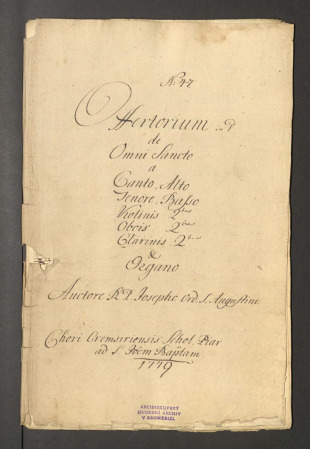 No. 47
Offertorium
de
Omni Sancto
a
Canto, Alto
Tenore, Basso
Violinis 2bus
Obois 2bus
Clarinis 2bus
&
Organo
Auctore R.P. Josepho Ord. S. Augustini
Chori Cremsiriensis Schol. Piar
ad S. Joêm Baptam
1779
ARCIBISKUPSKÝ
HUDEBNÍ ARCHIV
V KROMĚŘÍŽI